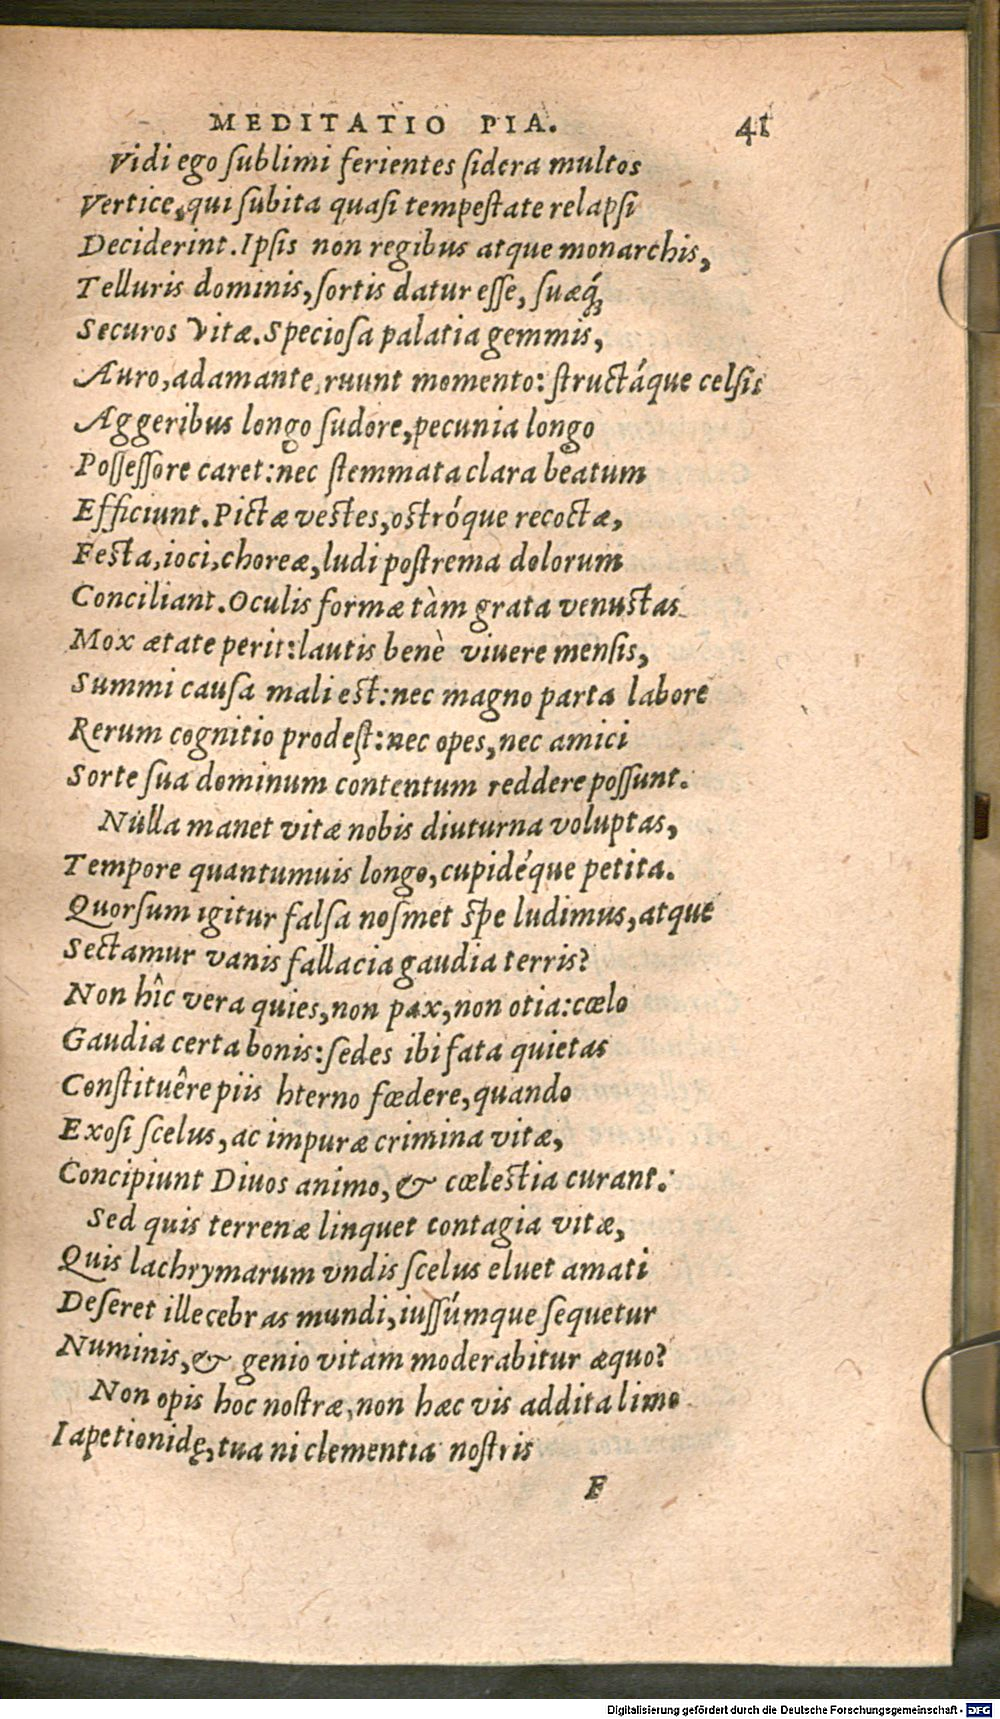 MEDITATIO PIA. 41
Vidi ego ſublimi ferientes ſidera multos
Vertice, qui ſubita quaſi tempeſtate relapſi
Deciderint. Ipſis non regibus atque monarchis,
Telluris dominis, ſortis datur eſſe, ſuæq́;
Securos Vitæ. Specioſa palatia gemmis,
Auro, adamante, ruunt momento: ſtructáque celſis
Aggeribus longo ſudore, pecunia longo
Poſſeſſore caret: nec ſtemmata clara beatum
Efficiunt. Pictæ veſtes, oſtróque recoctæ,
Feſta, ioci, choreæ, ludi poſtrema dolorum
Conciliant. Oculis formæ tàm grata venuſtas
Mox ætate perit: lautis benè viuere menſis,
Summi cauſa mali eſt: nec magno parta labore
Rerum cognitio prodeſt: nec opes, nec amici
Sorte ſua dominum contentum reddere poſſunt.
Nulla manet vitæ nobis diuturna voluptas,
Tempore quantumuis longo, cupidéque petita.
Quorſum igitur falſa noſmet ſpe ludimus, atque
Sectamur vanis fallacia gaudia terris?
Non hîc vera quies, non pax, non otia: cœlo
Gaudia certa bonis: ſedes ibi fata quietas
Conſtituêre piis hterno fœdere, quando
Exoſi ſcelus, ac impuræ crimina vitæ,
Concipiunt Diuos animo, & cœleſtia curant.
Sed quis terrenæ linquet contagia vitæ,
Quis lachrymarum vndis ſcelus eluet amati
Deſeret illecebras mundi, iuſſúmque ſequetur
Numinis, & genio vitam moderabitur æquo?
Non opis hoc noſtræ, non hæc vis addita limo
Iapetionidę, tua ni clementia noſtris
F
Digitalisierung gefördert durch die Deutsche Forschungsgemeinschaft - DFG